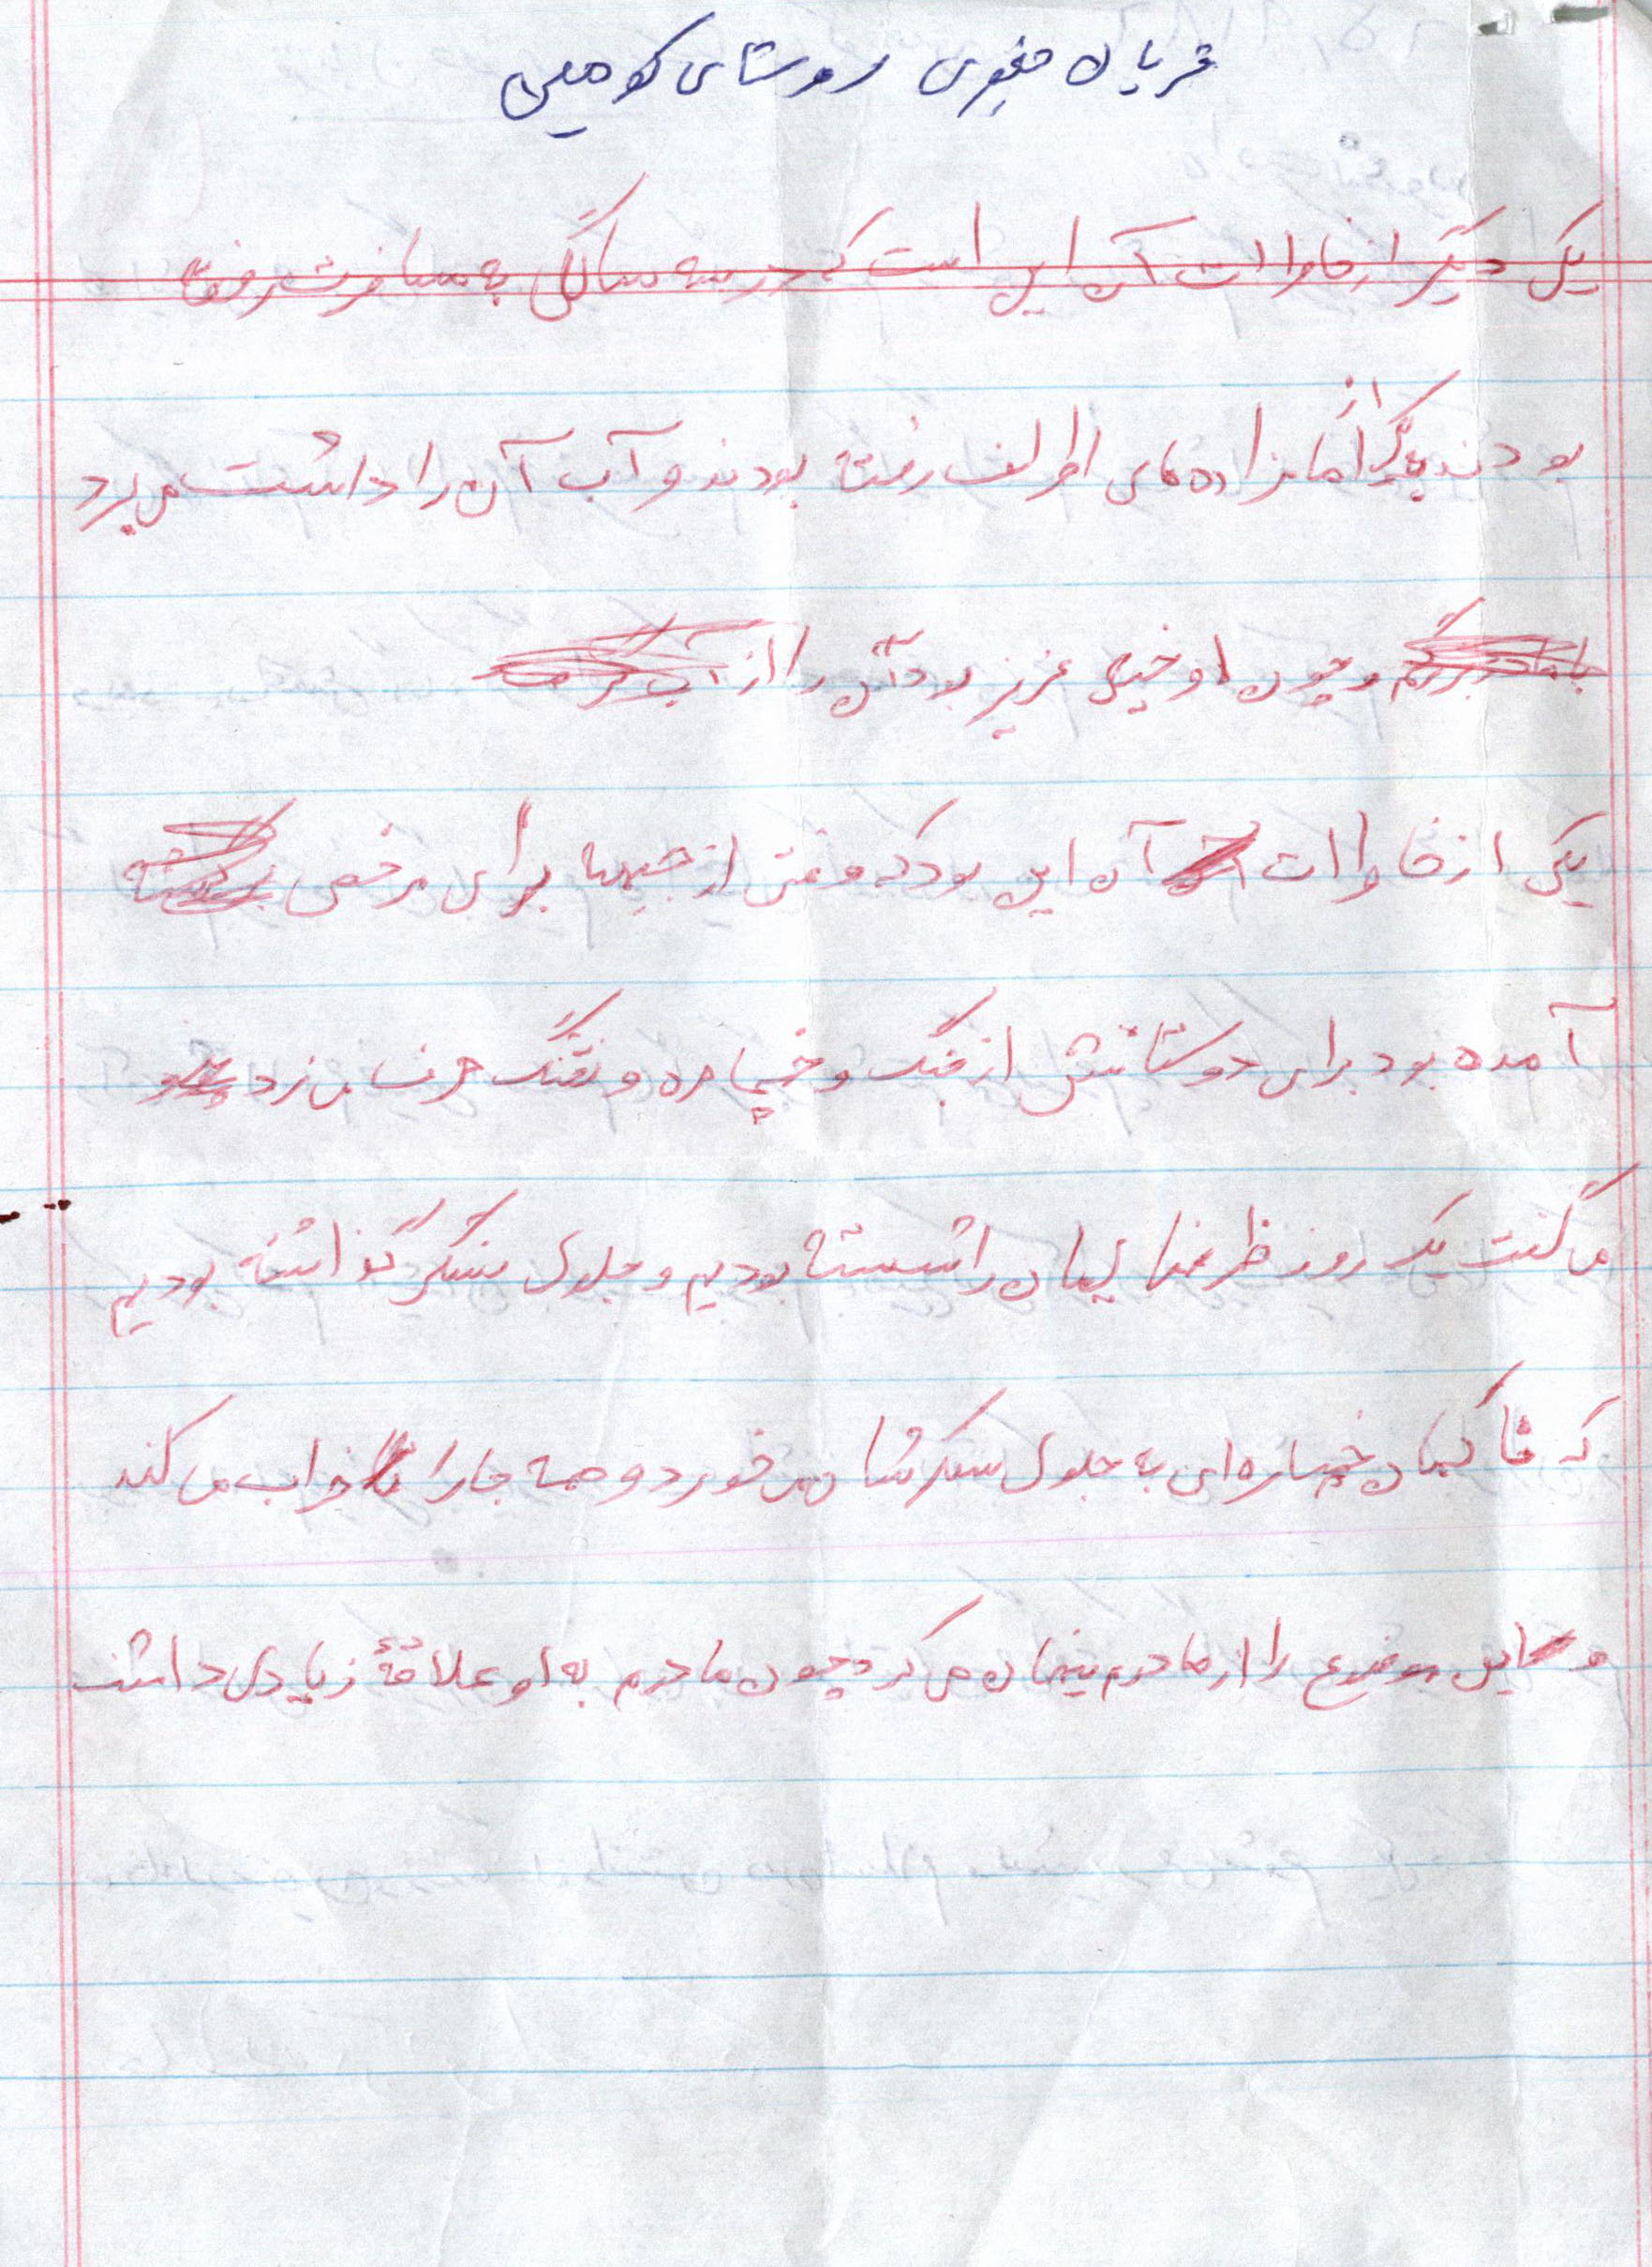 قربان صفری روستای کوهیلی
یکی دیگر از خاطرات آن این است که در سه سالگی به مسافرت رفته
بودند یکی از امامزاده‌های اطراف رفته بودند و آب آن را داشت می‌برد
و چون او خیلی عزیز بود آن را از
یکی از خاطرات آن این بود که وقتی از جبهه برای مرخصی
آمده بود برای دوستانش از جنگ و خمپاره و تفنگ حرف می‌زد
می‌گفت یک روز ظرفهایمان را شسته بودیم و جلوی سنگر گذاشته بودیم
که ناگهان خمپاره‌ای به جلوی سنگرشان می‌خورد و همه جا را خراب می‌کند
و این موضوع را از مادرم پنهان می‌کرد چون مادرم به او علاقهٔ زیادی داشت